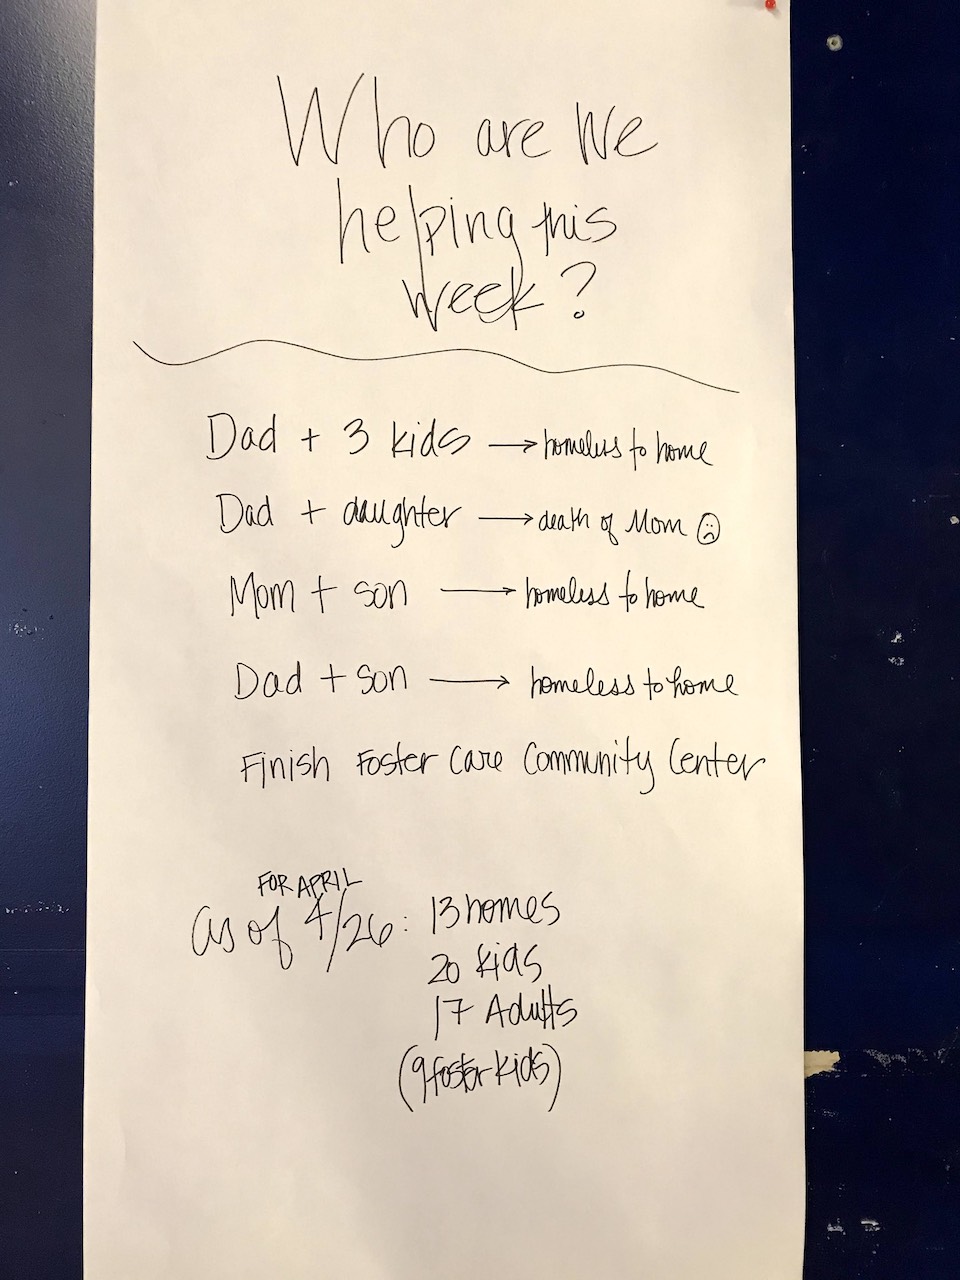 Who are We
helping this
week?
Dad + 3 kids → homeless to home
Dad + daughter → death of Mom ☹
Mom + son → homeless to home
Dad + son → homeless to home
Finish Foster Care Community Center
FOR APRIL
as of 4/26: 13 homes
20 kids
17 Adults
(9 foster kids)